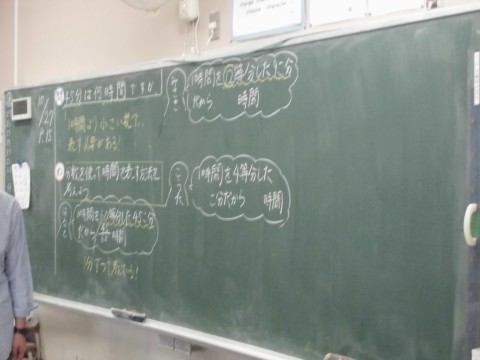 10/27
P.15
問 45分は何時間ですか。
1時間より小さい数で、
表す必要がある!
め 分数を使って時間を表す方法を
考えよう。
1時間を60等分した45こ分
だから 45/60 時間
1分ずつで考える!
1時間を□等分した□こ分
だから 時間
1時間を4等分した
こ分だから 時間